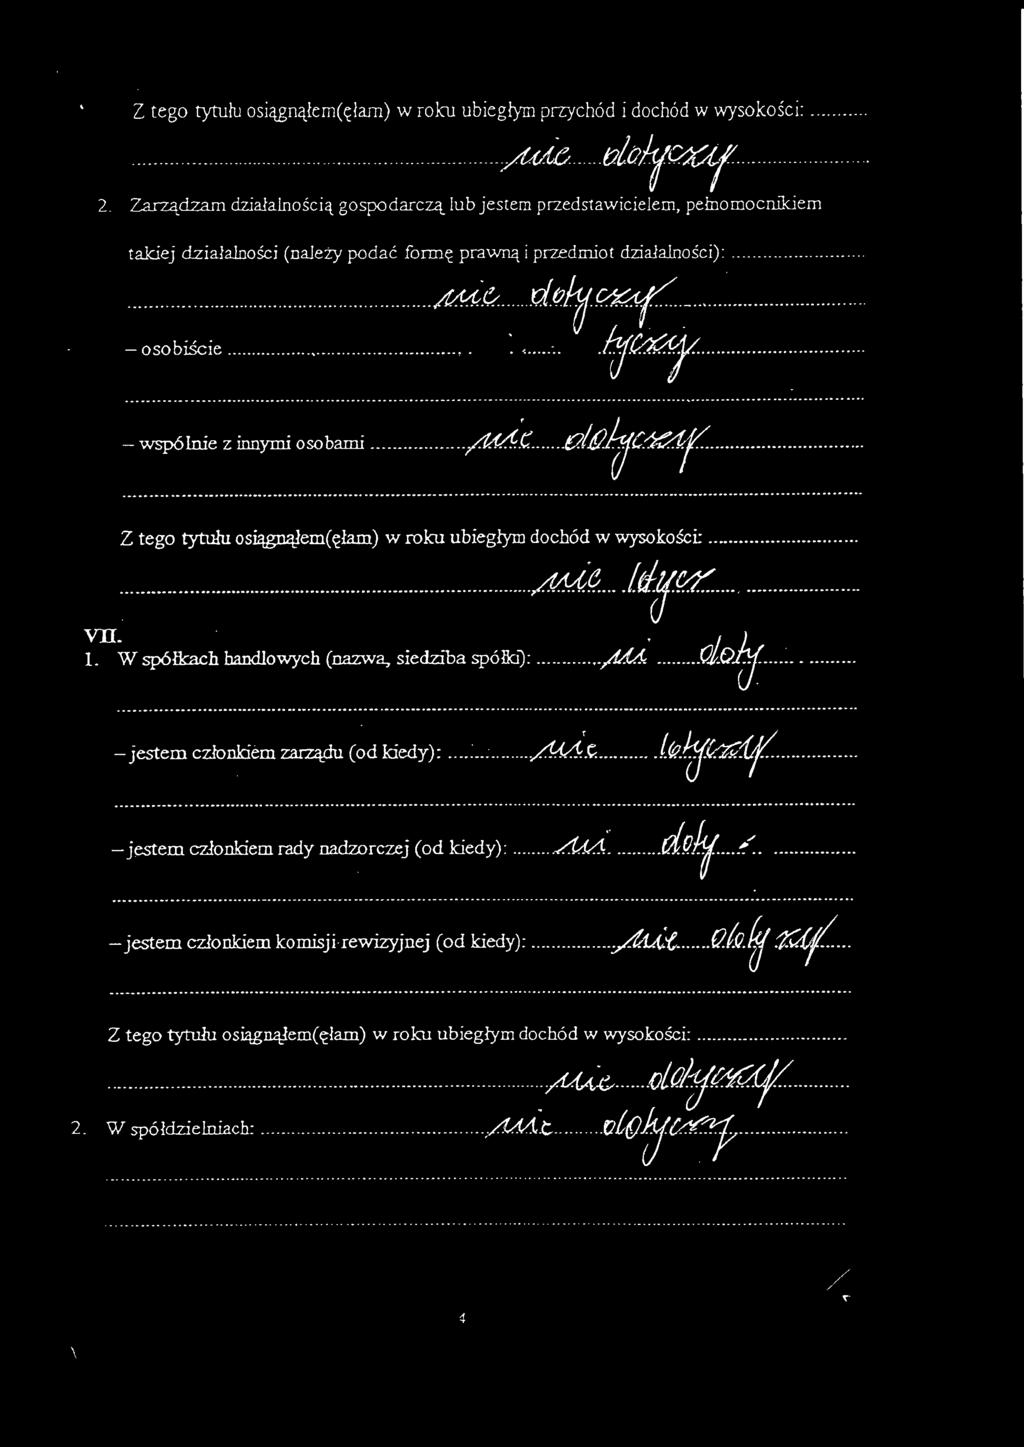 Z tego tytułu osiągnąłem(ęłam) w roku ubiegłym przychód i dochód w wysokości: ...........
nie dotyczy
2. Zarządzam działalnością gospodarczą lub jestem przedstawicielem, pełnomocnikiem
takiej działalności (należy podać formę prawną i przedmiot działalności): ...........
nie dotyczy
– osobiście ........... tyczy
– wspólnie z innymi osobami ........... nie dotyczy
Z tego tytułu osiągnąłem(ęłam) w roku ubiegłym dochód w wysokości: ...........
nie
VII.
1. W spółkach handlowych (nazwa, siedziba spółki): ........... ni doty
– jestem członkiem zarządu (od kiedy): ........... nie
– jestem członkiem rady nadzorczej (od kiedy): ........... ni doty
– jestem członkiem komisji rewizyjnej (od kiedy): ........... nie doty zy
Z tego tytułu osiągnąłem(ęłam) w roku ubiegłym dochód w wysokości: ...........
nie dotyczy
2. W spółdzielniach: ........... nie dotyczy
4